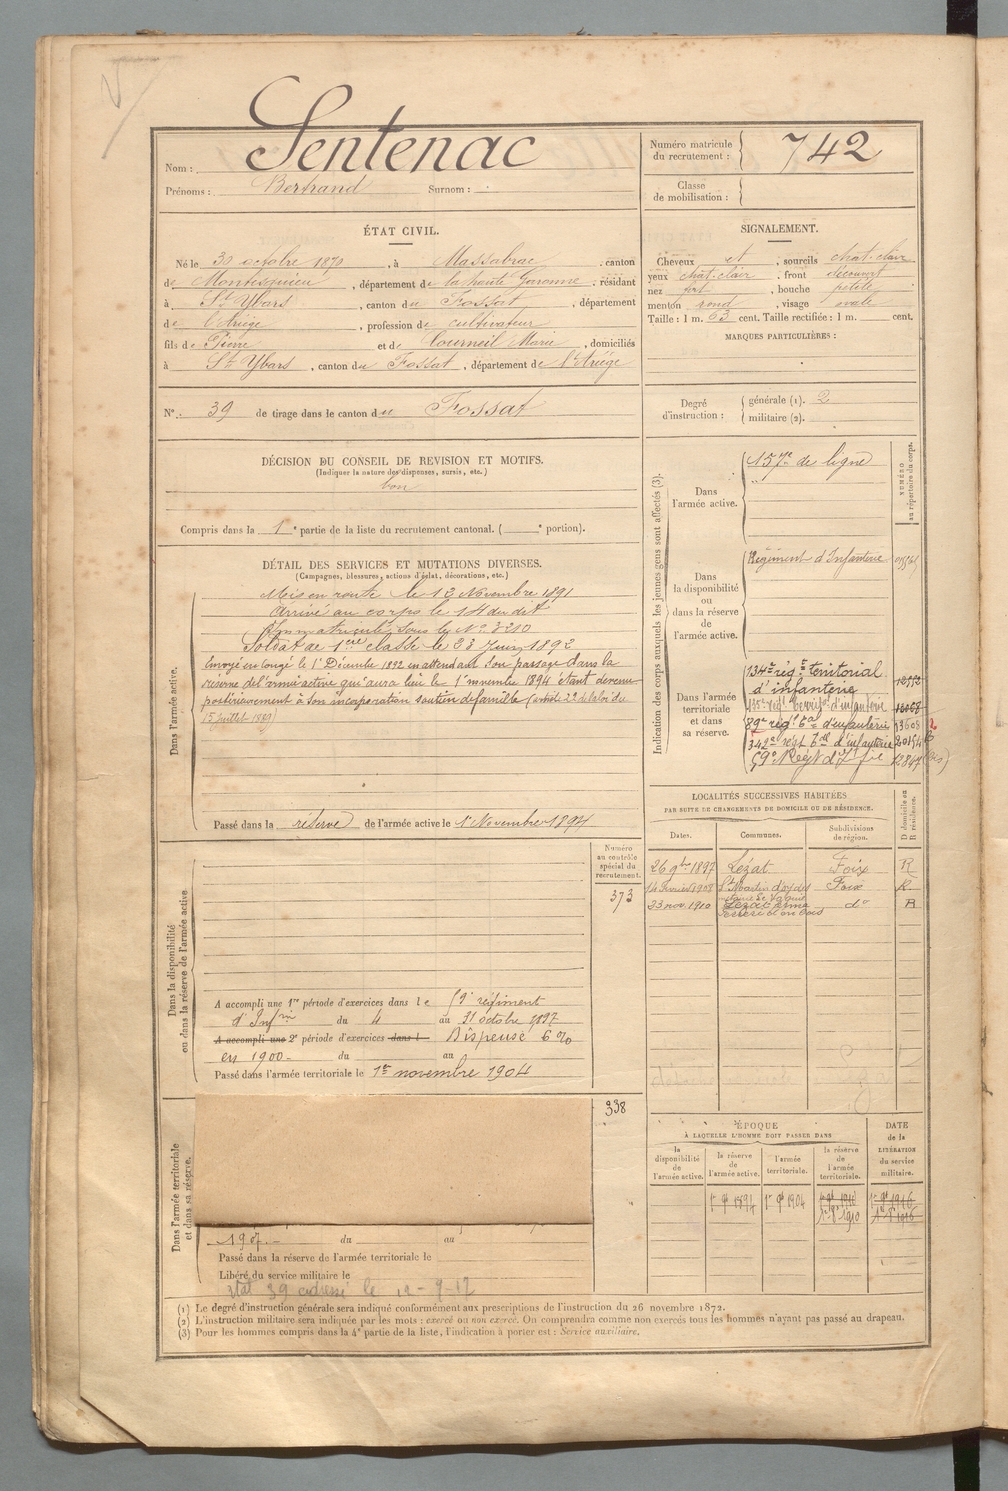 Nom : Sentenac
Prénoms : Bertrand Surnom :
Numéro matricule du recrutement : 742
Classe de mobilisation :
ÉTAT CIVIL.
Né le 30 octobre 1870, à Massabrac, canton
de Montesquieu, département de la haute Garonne, résidant
à St Ybars, canton du Fossat, département
de l'Ariège, profession de cultivateur
fils de Pierre et de Courneil Marie, domiciliés
à St Ybars, canton du Fossat, département de l'Ariège
N° 39 de tirage dans le canton du Fossat
SIGNALEMENT.
Cheveux et, sourcils chat. clair
yeux chat. clair, front découvert
nez fort, bouche petite
menton rond, visage ovale
Taille : 1 m. 63 cent. Taille rectifiée : 1 m. cent.
MARQUES PARTICULIÈRES :
Degré d'instruction : générale (1). 2
militaire (2).
DÉCISION DU CONSEIL DE REVISION ET MOTIFS.
(Indiquer la nature des dispenses, sursis, etc.)
bon
Compris dans la 1e partie de la liste du recrutement cantonal. ( e portion).
DÉTAIL DES SERVICES ET MUTATIONS DIVERSES.
(Campagnes, blessures, actions d'éclat, décorations, etc.)
Dans l'armée active.
Mis en route le 12 Novembre 1891
Arrivé au corps le 14 du dit
Immatriculé sous le N° 3210
Soldat de 1ère classe le 23 Juin 1892
Envoyé en congé le 1er Décembre 1892 en attendant son passage dans la
réserve de l'armée active qui aura lieu le 1er novembre 1894 étant devenu
postérieurement à son incorporation soutien de famille (article 22 de la loi du
15 juillet 1889)
Passé dans la réserve de l'armée active le 1er Novembre 1894
Indication des corps auxquels les jeunes gens sont affectés (3).
NUMÉRO au répertoire du corps.
Dans l'armée active.
157e de ligne
Dans la disponibilité ou dans la réserve de l'armée active.
Régiment d'Infanterie
Dans l'armée territoriale et dans sa réserve.
134e rég.t territorial
d'infanterie 12552
135e régt territ. d'infanterie 12008
89e régt d'infanterie 13608
342e régt d'infanterie
59e Régt d'Infie 12847 (bis)
LOCALITÉS SUCCESSIVES HABITÉES
PAR SUITE DE CHANGEMENTS DE DOMICILE OU DE RÉSIDENCE.
Dates. Communes. Subdivisions de région. D domicile ou R résidence.
26 9bre 1897 Lézat Foix R
14 février 1908 St Martin d'oydes Foix R
23 nov. 1910 Lézat do R
Dans la disponibilité ou dans la réserve de l'armée active
Numéro au contrôle spécial du recrutement.
373
A accompli une 1re période d'exercices dans le 59e régiment
d'Infrie du 4 au 31 octobre 1897
A accompli une 2e période d'exercices dans l Dispensé 6%
en 1900 du au
Passé dans l'armée territoriale le 1er novembre 1904
Dans l'armée territoriale et dans sa réserve.
338
1907 du au
Passé dans la réserve de l'armée territoriale le
Libéré du service militaire le
état 39 adressé le
ÉPOQUE
À LAQUELLE L'HOMME DOIT PASSER DANS
la disponibilité de l'armée active. la réserve de l'armée active. l'armée territoriale. la réserve de l'armée territoriale.
DATE de la LIBÉRATION du service militaire.
1er 9bre 1894 1er 9bre 1904 1er 9bre 1910 1er 9bre 1916
(1) Le degré d'instruction générale sera indiqué conformément aux prescriptions de l'instruction du 26 novembre 1872.
(2) L'instruction militaire sera indiquée par les mots : exercé ou non exercé. On comprendra comme non exercés tous les hommes n'ayant pas passé au drapeau.
(3) Pour les hommes compris dans la 4e partie de la liste, l'indication à porter est : Service auxiliaire.